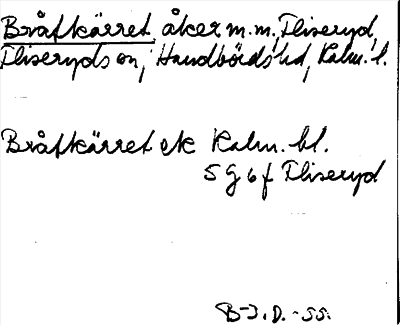 Bråtkärret, åker m.m., Fliseryd,
Fliseryds sn, Handbörds hd, Kalm. l.
Bråtkärret ek Kalm. bl.
5 G 6 f Fliseryd
B-J. D. -55.